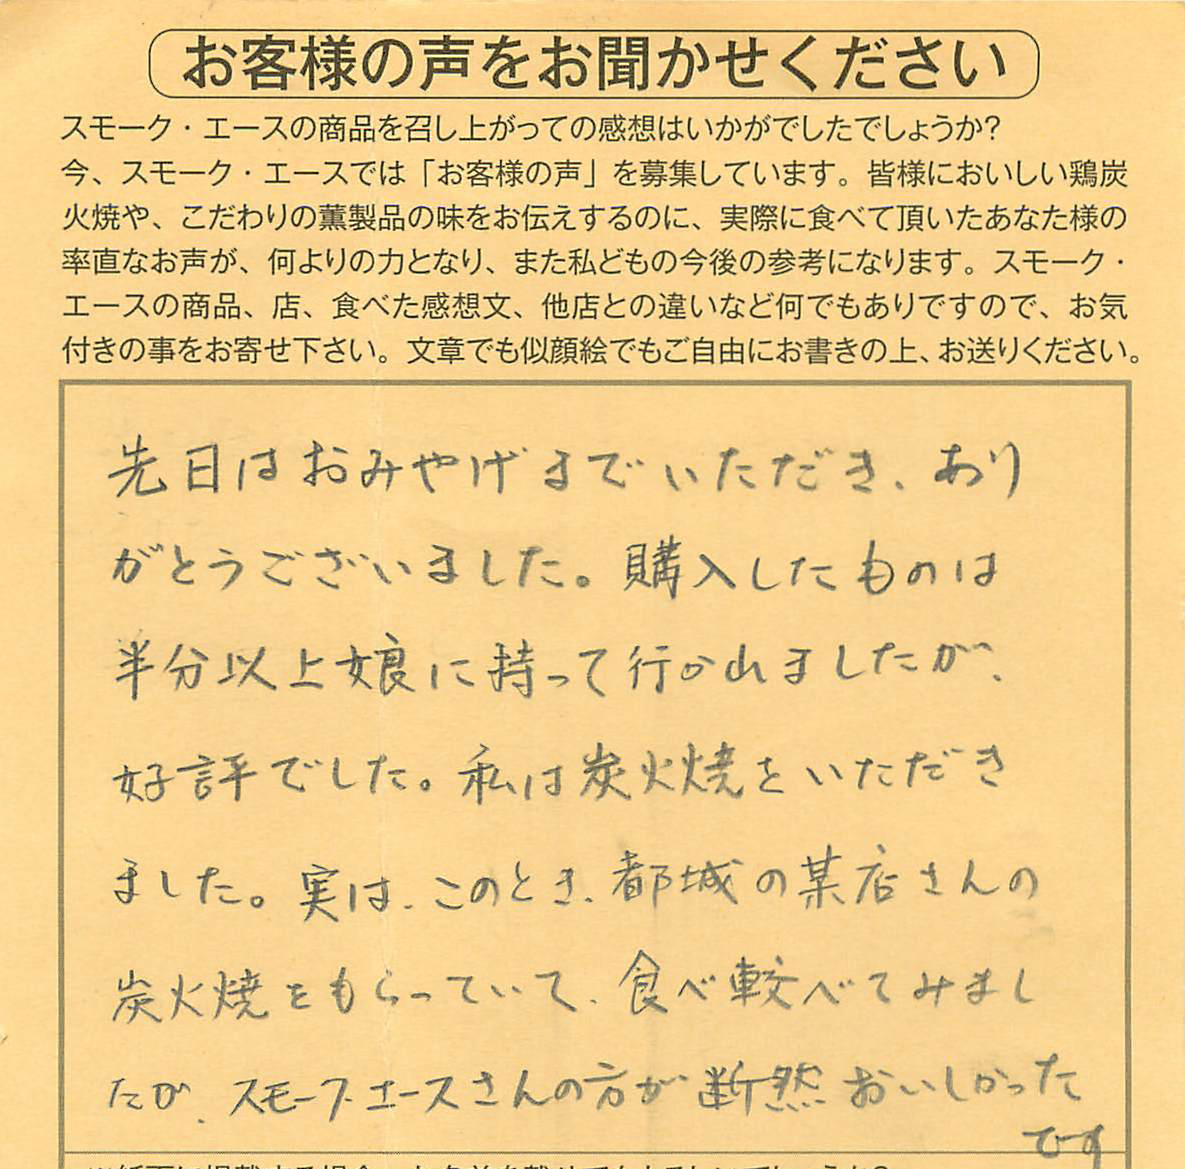 お客様の声をお聞かせください
スモーク・エースの商品を召し上がっての感想はいかがでしたでしょうか?
今、スモーク・エースでは「お客様の声」を募集しています。皆様においしい鶏炭
火焼や、こだわりの薫製品の味をお伝えするのに、実際に食べて頂いたあなた様の
率直なお声が、何よりの力となり、また私どもの今後の参考になります。スモーク・
エースの商品、店、食べた感想文、他店との違いなど何でもありですので、お気
付きの事をお寄せ下さい。文章でも似顔絵でもご自由にお書きの上、お送りください。
先日はおみやげまでいただき、あり
がとうございました。購入したものは
半分以上娘に持って行かれましたが、
好評でした。私は炭火焼をいただき
ました。実は、このとき、都城の某店さんの
炭火焼をもらっていて、食べ較べてみまし
たが、スモークエースさんの方が断然おいしかった
です